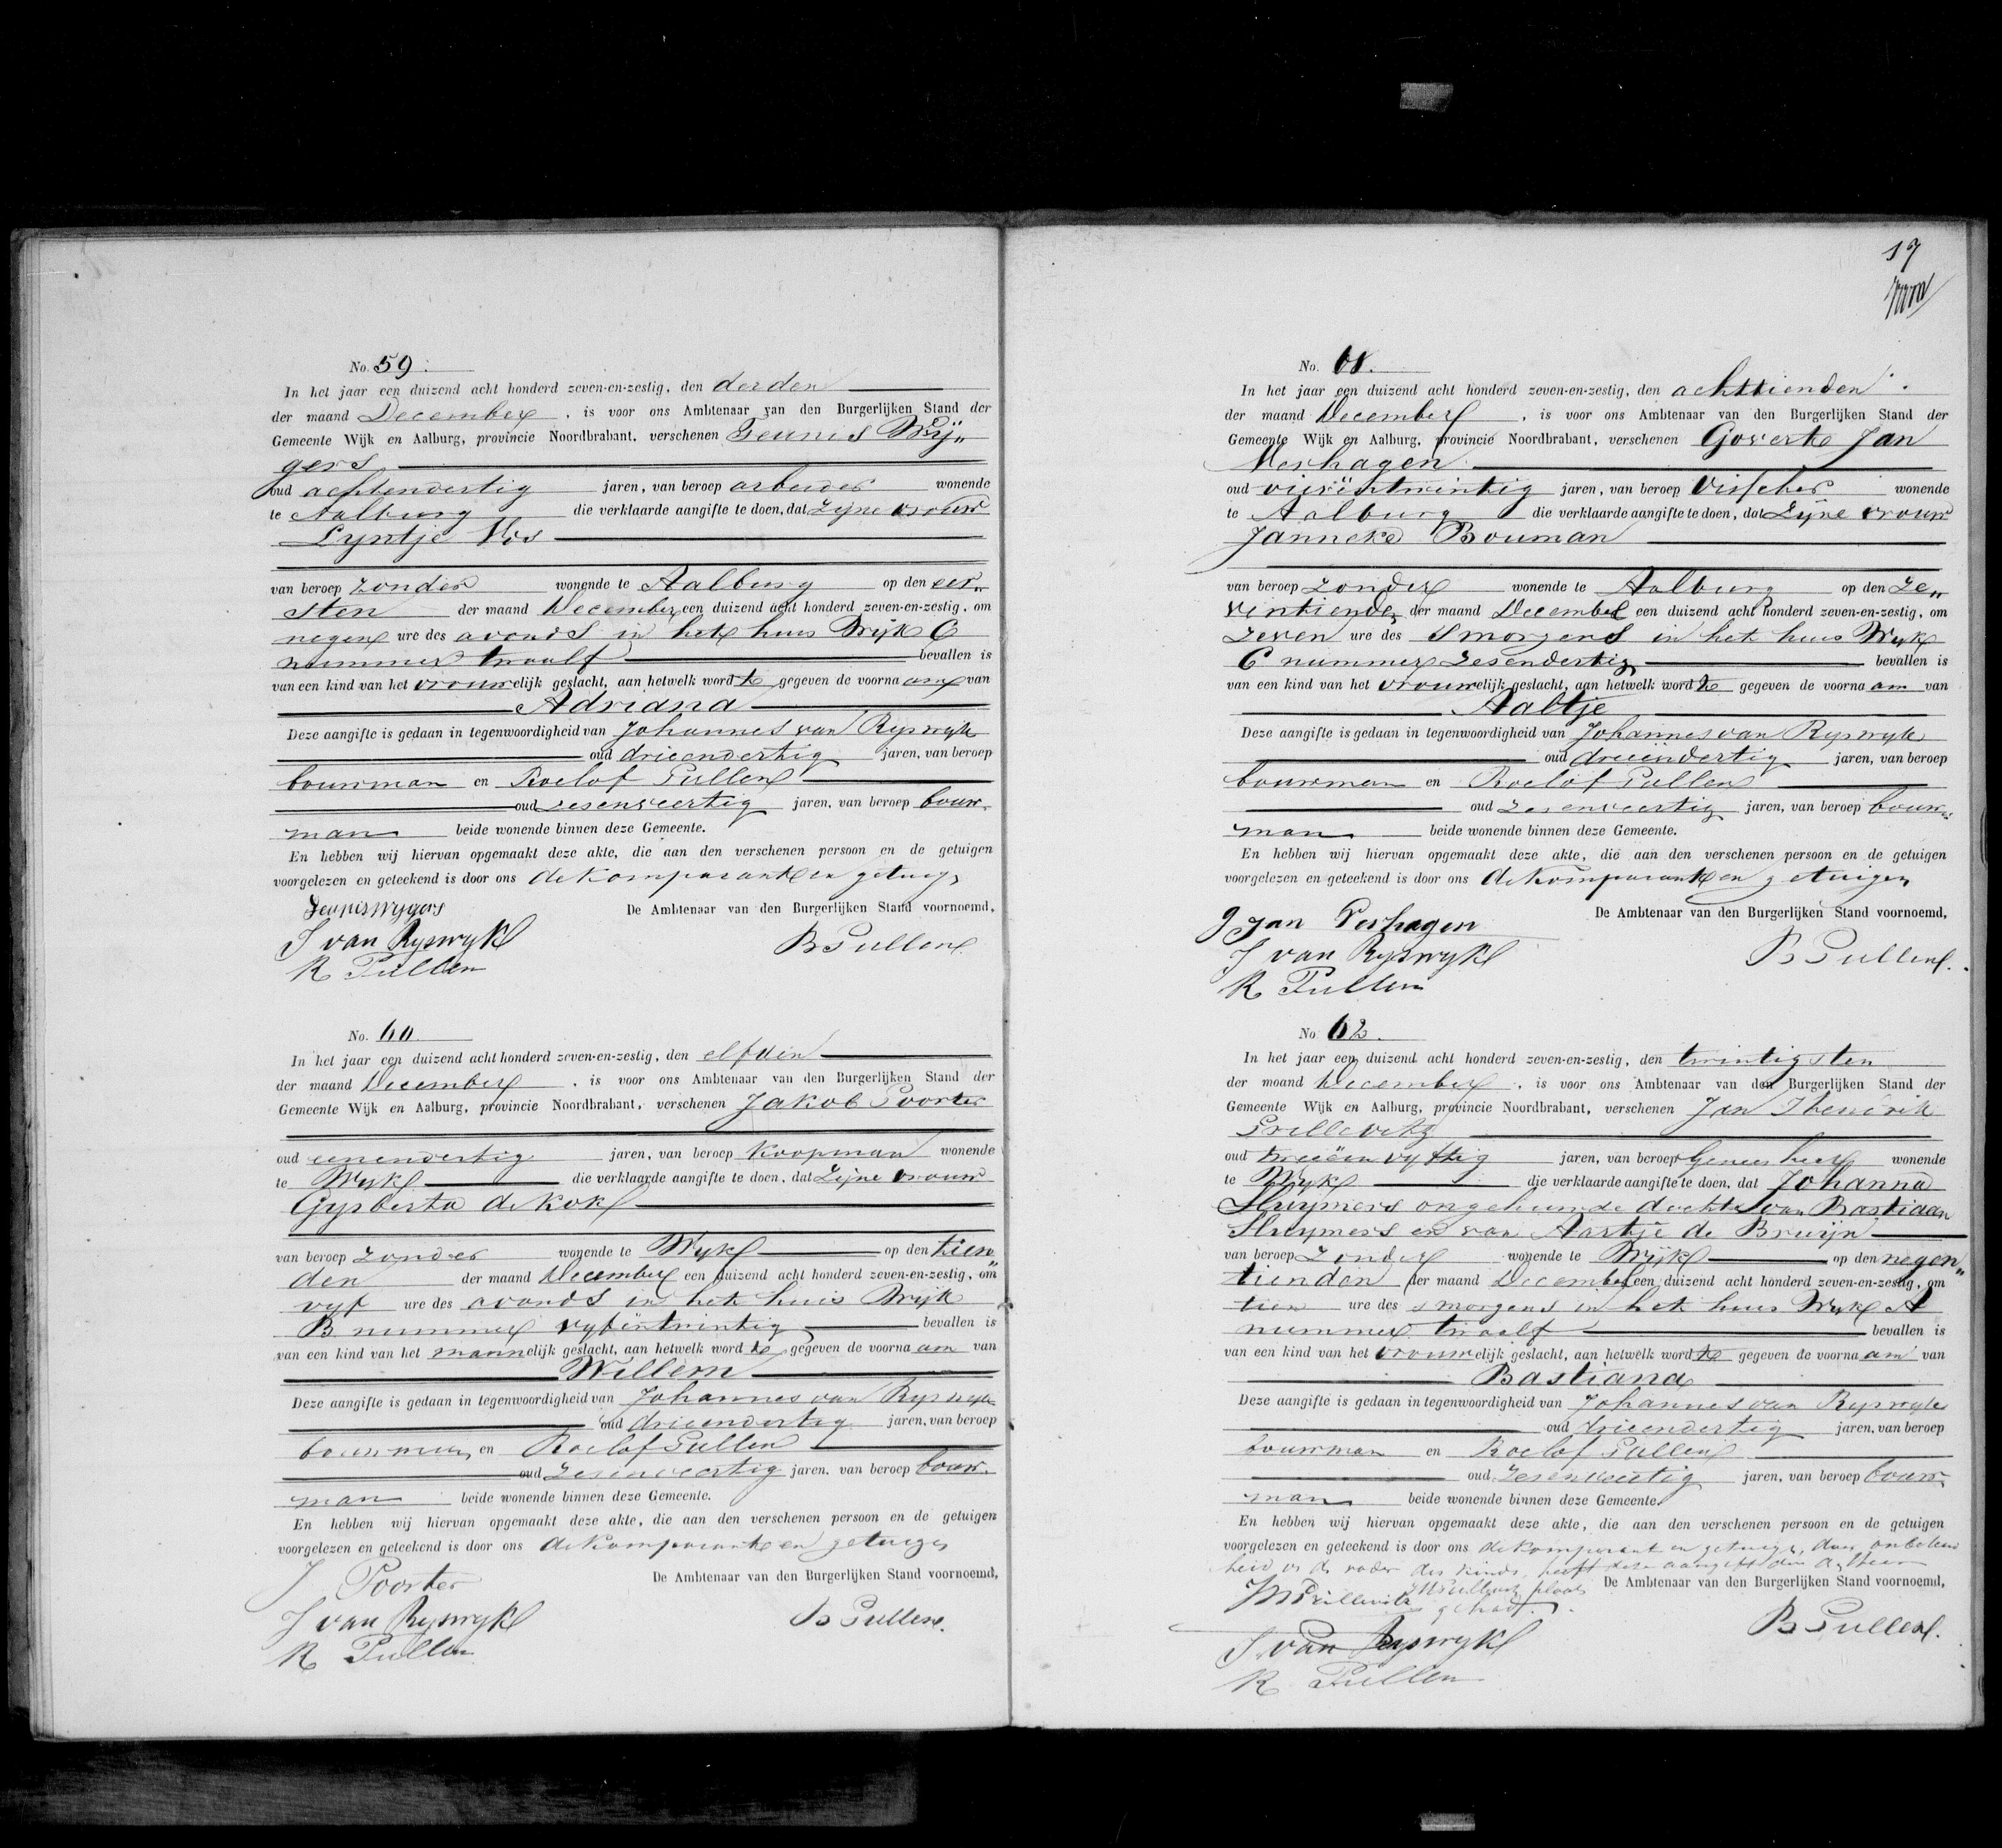 No. 59.
In het jaar een duizend acht honderd zeven-en-zestig, den derden
der maand December, is voor ons Ambtenaar van den Burgerlijken Stand der
Gemeente Wijk en Aalburg, provincie Noordbrabant, verschenen Teunis Wij„
gers
oud achtendertig jaren, van beroep arbeider wonende
te Aalburg die verklaarde aangifte te doen, dat zijne vrouw
Lyntje Vos
van beroep zonder wonende te Aalburg op den eer„
sten der maand December een duizend acht honderd zeven-en-zestig, om
negen ure des avonds in het huis Wijk C
nummer twaalf bevallen is
van een kind van het vrouwelijk geslacht, aan hetwelk wordt gegeven de voornaam van
Adriana
Deze aangifte is gedaan in tegenwoordigheid van Johannes van Ryswyk
oud drieendertig jaren, van beroep
bouwman en Roelof Pullen
oud zesenveertig jaren, van beroep bouw„
man beide wonende binnen deze Gemeente.
En hebben wij hiervan opgemaakt deze akte, die aan den verschenen persoon en de getuigen
voorgelezen en geteekend is door ons de komparant en getuigen
Teunis Wygers De Ambtenaar van den Burgerlijken Stand voornoemd,
J van Ryswyk B Pullen.
R Pullen
No. 60.
In het jaar een duizend acht honderd zeven-en-zestig, den elfden
der maand December, is voor ons Ambtenaar van den Burgerlijken Stand der
Gemeente Wijk en Aalburg, provincie Noordbrabant, verschenen Jakob Poorter
oud eenendertig jaren, van beroep koopman wonende
te Wyk die verklaarde aangifte te doen, dat zijne vrouw
Gysberta de Kok
van beroep zonder wonende te Wyk op den tien„
den der maand December een duizend acht honderd zeven-en-zestig, om
vyf ure des avonds in het huis Wyk
B nummer vyfëntwintig bevallen is
van een kind van het mannelijk geslacht, aan hetwelk wordt gegeven de voornaam van
Willem
Deze aangifte is gedaan in tegenwoordigheid van Johannes van Ryswyk
oud drieendertig jaren, van beroep
bouwman en Roelof Pullen
oud zesenveertig jaren, van beroep bouw„
man beide wonende binnen deze Gemeente.
En hebben wij hiervan opgemaakt deze akte, die aan den verschenen persoon en de getuigen
voorgelezen en geteekend is door ons de komparant en getuigen
J Poorter De Ambtenaar van den Burgerlijken Stand voornoemd,
J van Ryswyk B Pullen.
R Pullen
17
No. 61.
In het jaar een duizend acht honderd zeven-en-zestig, den achttienden
der maand December, is voor ons Ambtenaar van den Burgerlijken Stand der
Gemeente Wijk en Aalburg, provincie Noordbrabant, verschenen Govert Jan
Verhagen
oud vierëntwintig jaren, van beroep visscher wonende
te Aalburg die verklaarde aangifte te doen, dat zijne vrouw
Janneke Bouman
van beroep zonder wonende te Aalburg op den ze„
ventienden der maand December een duizend acht honderd zeven-en-zestig, om
zeven ure des smorgens in het huis Wyk
C nummer zesendertig bevallen is
van een kind van het vrouwelijk geslacht, aan hetwelk wordt gegeven de voornaam van
Aaltje
Deze aangifte is gedaan in tegenwoordigheid van Johannes van Ryswyk
oud drieëndertig jaren, van beroep
bouwman en Roelof Pullen
oud zesenveertig jaren, van beroep bouw„
man beide wonende binnen deze Gemeente.
En hebben wij hiervan opgemaakt deze akte, die aan den verschenen persoon en de getuigen
voorgelezen en geteekend is door ons de komparant en getuigen
G Jan Verhagen De Ambtenaar van den Burgerlijken Stand voornoemd,
J van Ryswyk B Pullen.
R Pullen
No 62.
In het jaar een duizend acht honderd zeven-en-zestig, den twintigsten
der maand December, is voor ons Ambtenaar van den Burgerlijken Stand der
Gemeente Wijk en Aalburg, provincie Noordbrabant, verschenen Jan Hendrik
Prillevitz
oud tweeënvyftig jaren, van beroep Geneesheer wonende
te Wyk die verklaarde aangifte te doen, dat Johanna
Sluymers ongehuwde dochter van Bastiaan
Sluymers en van Aartje de Bruijn
van beroep zonder wonende te Wijk op den negen„
tienden der maand December een duizend acht honderd zeven-en-zestig, om
tien ure des smorgens in het huis Wyk A
nummer twaalf bevallen is
van een kind van het vrouwelijk geslacht, aan hetwelk wordt gegeven de voornaam van
Bastiana
Deze aangifte is gedaan in tegenwoordigheid van Johannes van Ryswyk
oud drieendertig jaren, van beroep
bouwman en Roelof Pullen
oud zesenveertig jaren, van beroep bouw„
man beide wonende binnen deze Gemeente.
En hebben wij hiervan opgemaakt deze akte, die aan den verschenen persoon en de getuigen
voorgelezen en geteekend is door ons de komparant en getuigen, door onbekend
heid van de vader des kinds, heeft deze aangifte door
plaats De Ambtenaar van den Burgerlijken Stand voornoemd,
Prillevitz gehad.
J van Ryswyk B Pullen.
R Pullen